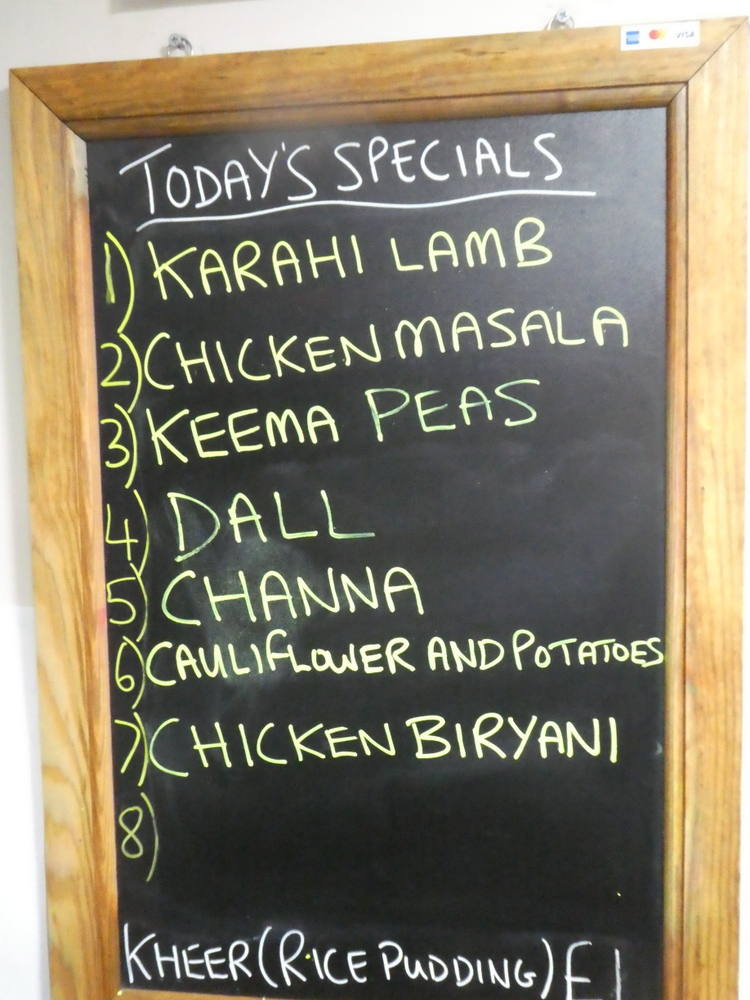 VISA
TODAY'S SPECIALS
1) KARAHI LAMB
2) CHICKEN MASALA
3) KEEMA PEAS
4) DALL
5) CHANNA
6) CAULIFLOWER AND POTATOES
7) CHICKEN BIRYANI
8)
KHEER (RICE PUDDING) £1